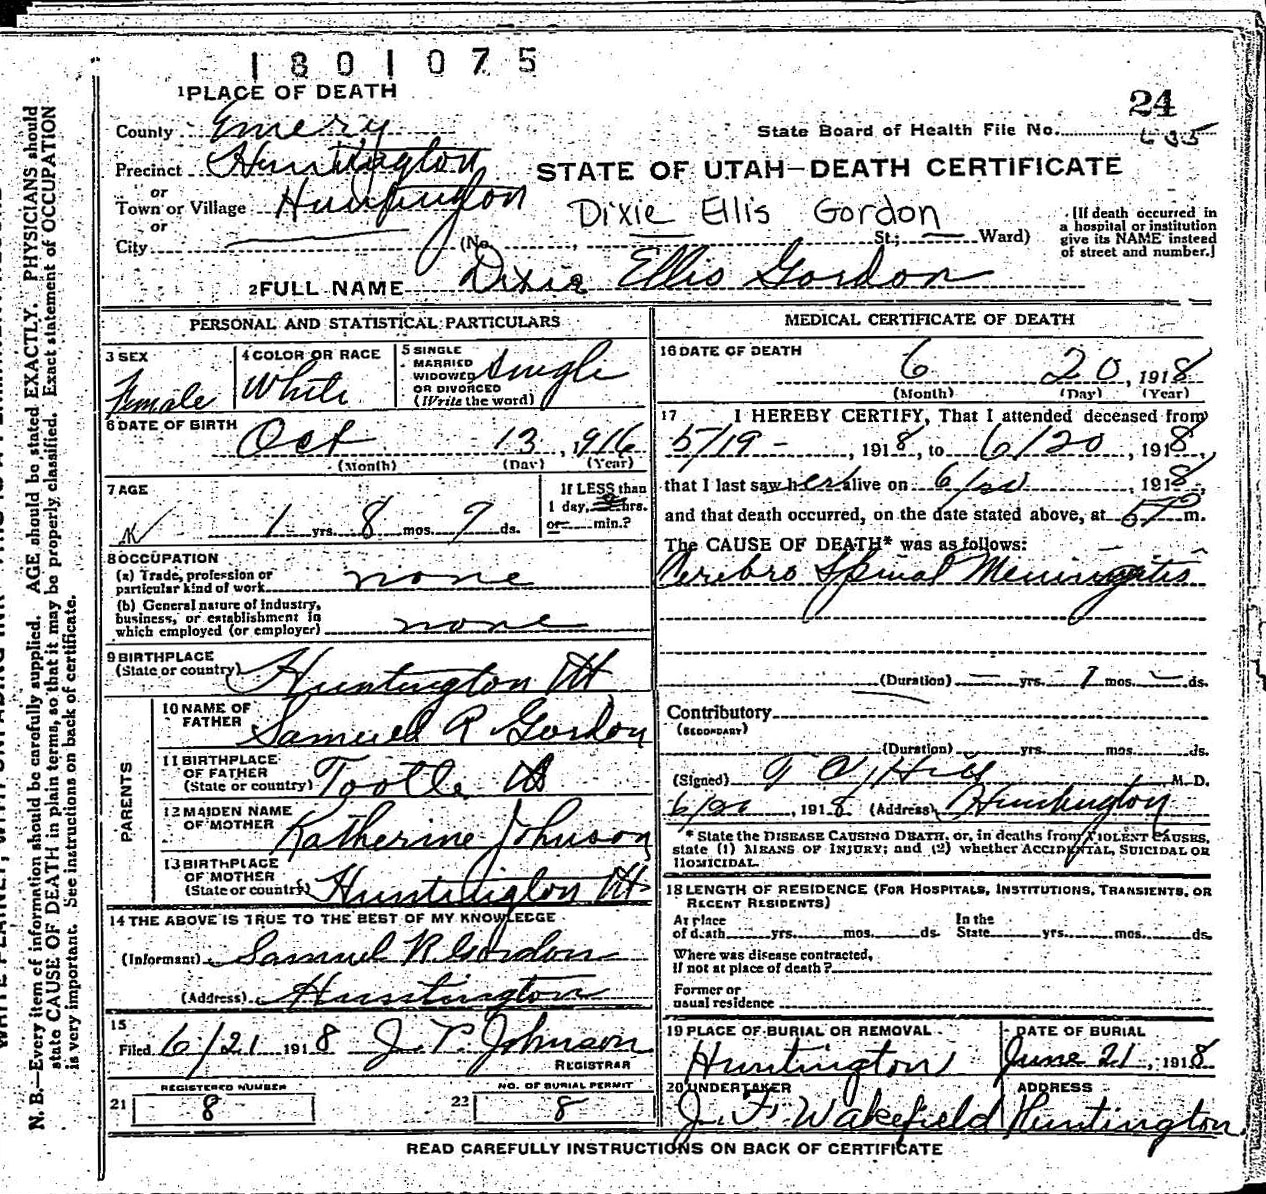 1801075
24
1 PLACE OF DEATH
County Emery
State Board of Health File No. 635
Precinct Huntington
STATE OF UTAH—DEATH CERTIFICATE
or
Town or Village Huntington
Dixie Ellis Gordon
or
City (No. , St.; Ward)
[If death occurred in
a hospital or institution
give its NAME instead
of street and number.]
2 FULL NAME Dixie Ellis Gordon
PERSONAL AND STATISTICAL PARTICULARS
3 SEX
Female
4 COLOR OR RACE
White
5 SINGLE
MARRIED
WIDOWED
OR DIVORCED
(Write the word)
Single
6 DATE OF BIRTH
Oct 13, 1916
(Month) (Day) (Year)
7 AGE
1 yrs. 8 mos. 7 ds.
If LESS than
1 day, hrs.
or min.?
8 OCCUPATION
(a) Trade, profession or
particular kind of work none
(b) General nature of industry,
business, or establishment in
which employed (or employer) none
9 BIRTHPLACE
(State or country) Huntington Ut
PARENTS
10 NAME OF
FATHER Samuel R Gordon
11 BIRTHPLACE
OF FATHER
(State or country) Tooele Ut
12 MAIDEN NAME
OF MOTHER Katherine Johnson
13 BIRTHPLACE
OF MOTHER
(State or country) Huntington Ut
14 THE ABOVE IS TRUE TO THE BEST OF MY KNOWLEDGE
(Informant) Samuel R Gordon
(Address) Huntington
15
Filed 6/21 1918 J. P. Johnson
REGISTRAR
REGISTERED NUMBER
21 8
NO. OF BURIAL PERMIT
22 8
MEDICAL CERTIFICATE OF DEATH
16 DATE OF DEATH
6 20, 1918
(Month) (Day) (Year)
17 I HEREBY CERTIFY, That I attended deceased from
5/19 - , 1918, to 6/20, 1918,
that I last saw her alive on 6/20, 1918,
and that death occurred, on the date stated above, at m.
The CAUSE OF DEATH* was as follows:
Cerebro Spinal Meningitis
(Duration) — yrs. 1 mos. — ds.
Contributory
(SECONDARY)
(Duration) yrs. mos. ds.
(Signed) Hill M. D.
6/20, 1918 (Address) Huntington
* State the DISEASE CAUSING DEATH, or, in deaths from VIOLENT CAUSES,
state (1) MEANS OF INJURY; and (2) whether ACCIDENTAL, SUICIDAL OR
HOMICIDAL.
18 LENGTH OF RESIDENCE (FOR HOSPITALS, INSTITUTIONS, TRANSIENTS, OR
RECENT RESIDENTS)
At place
of death yrs. mos. ds.
In the
State yrs. mos. ds.
Where was disease contracted,
if not at place of death?
Former or
usual residence
19 PLACE OF BURIAL OR REMOVAL
Huntington
DATE OF BURIAL
June 21, 1918
20 UNDERTAKER
J. F. Wakefield
ADDRESS
Huntington
READ CAREFULLY INSTRUCTIONS ON BACK OF CERTIFICATE
N. B.—Every item of information should be carefully supplied. AGE should be stated EXACTLY. PHYSICIANS should
state CAUSE OF DEATH in plain terms, so that it may be properly classified. Exact statement of OCCUPATION
is very important. See instructions on back of certificate.